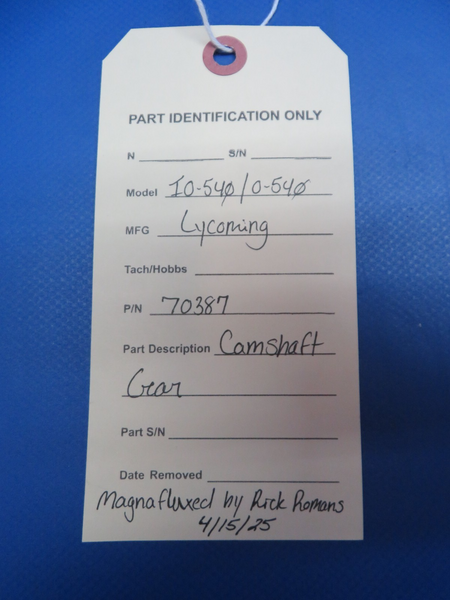 PART IDENTIFICATION ONLY
N S/N
Model IO-540/O-540
MFG Lycoming
Tach/Hobbs
P/N 70387
Part Description Camshaft
Gear
Part S/N
Date Removed
Magnafluxed by Rick Romans
4/15/25